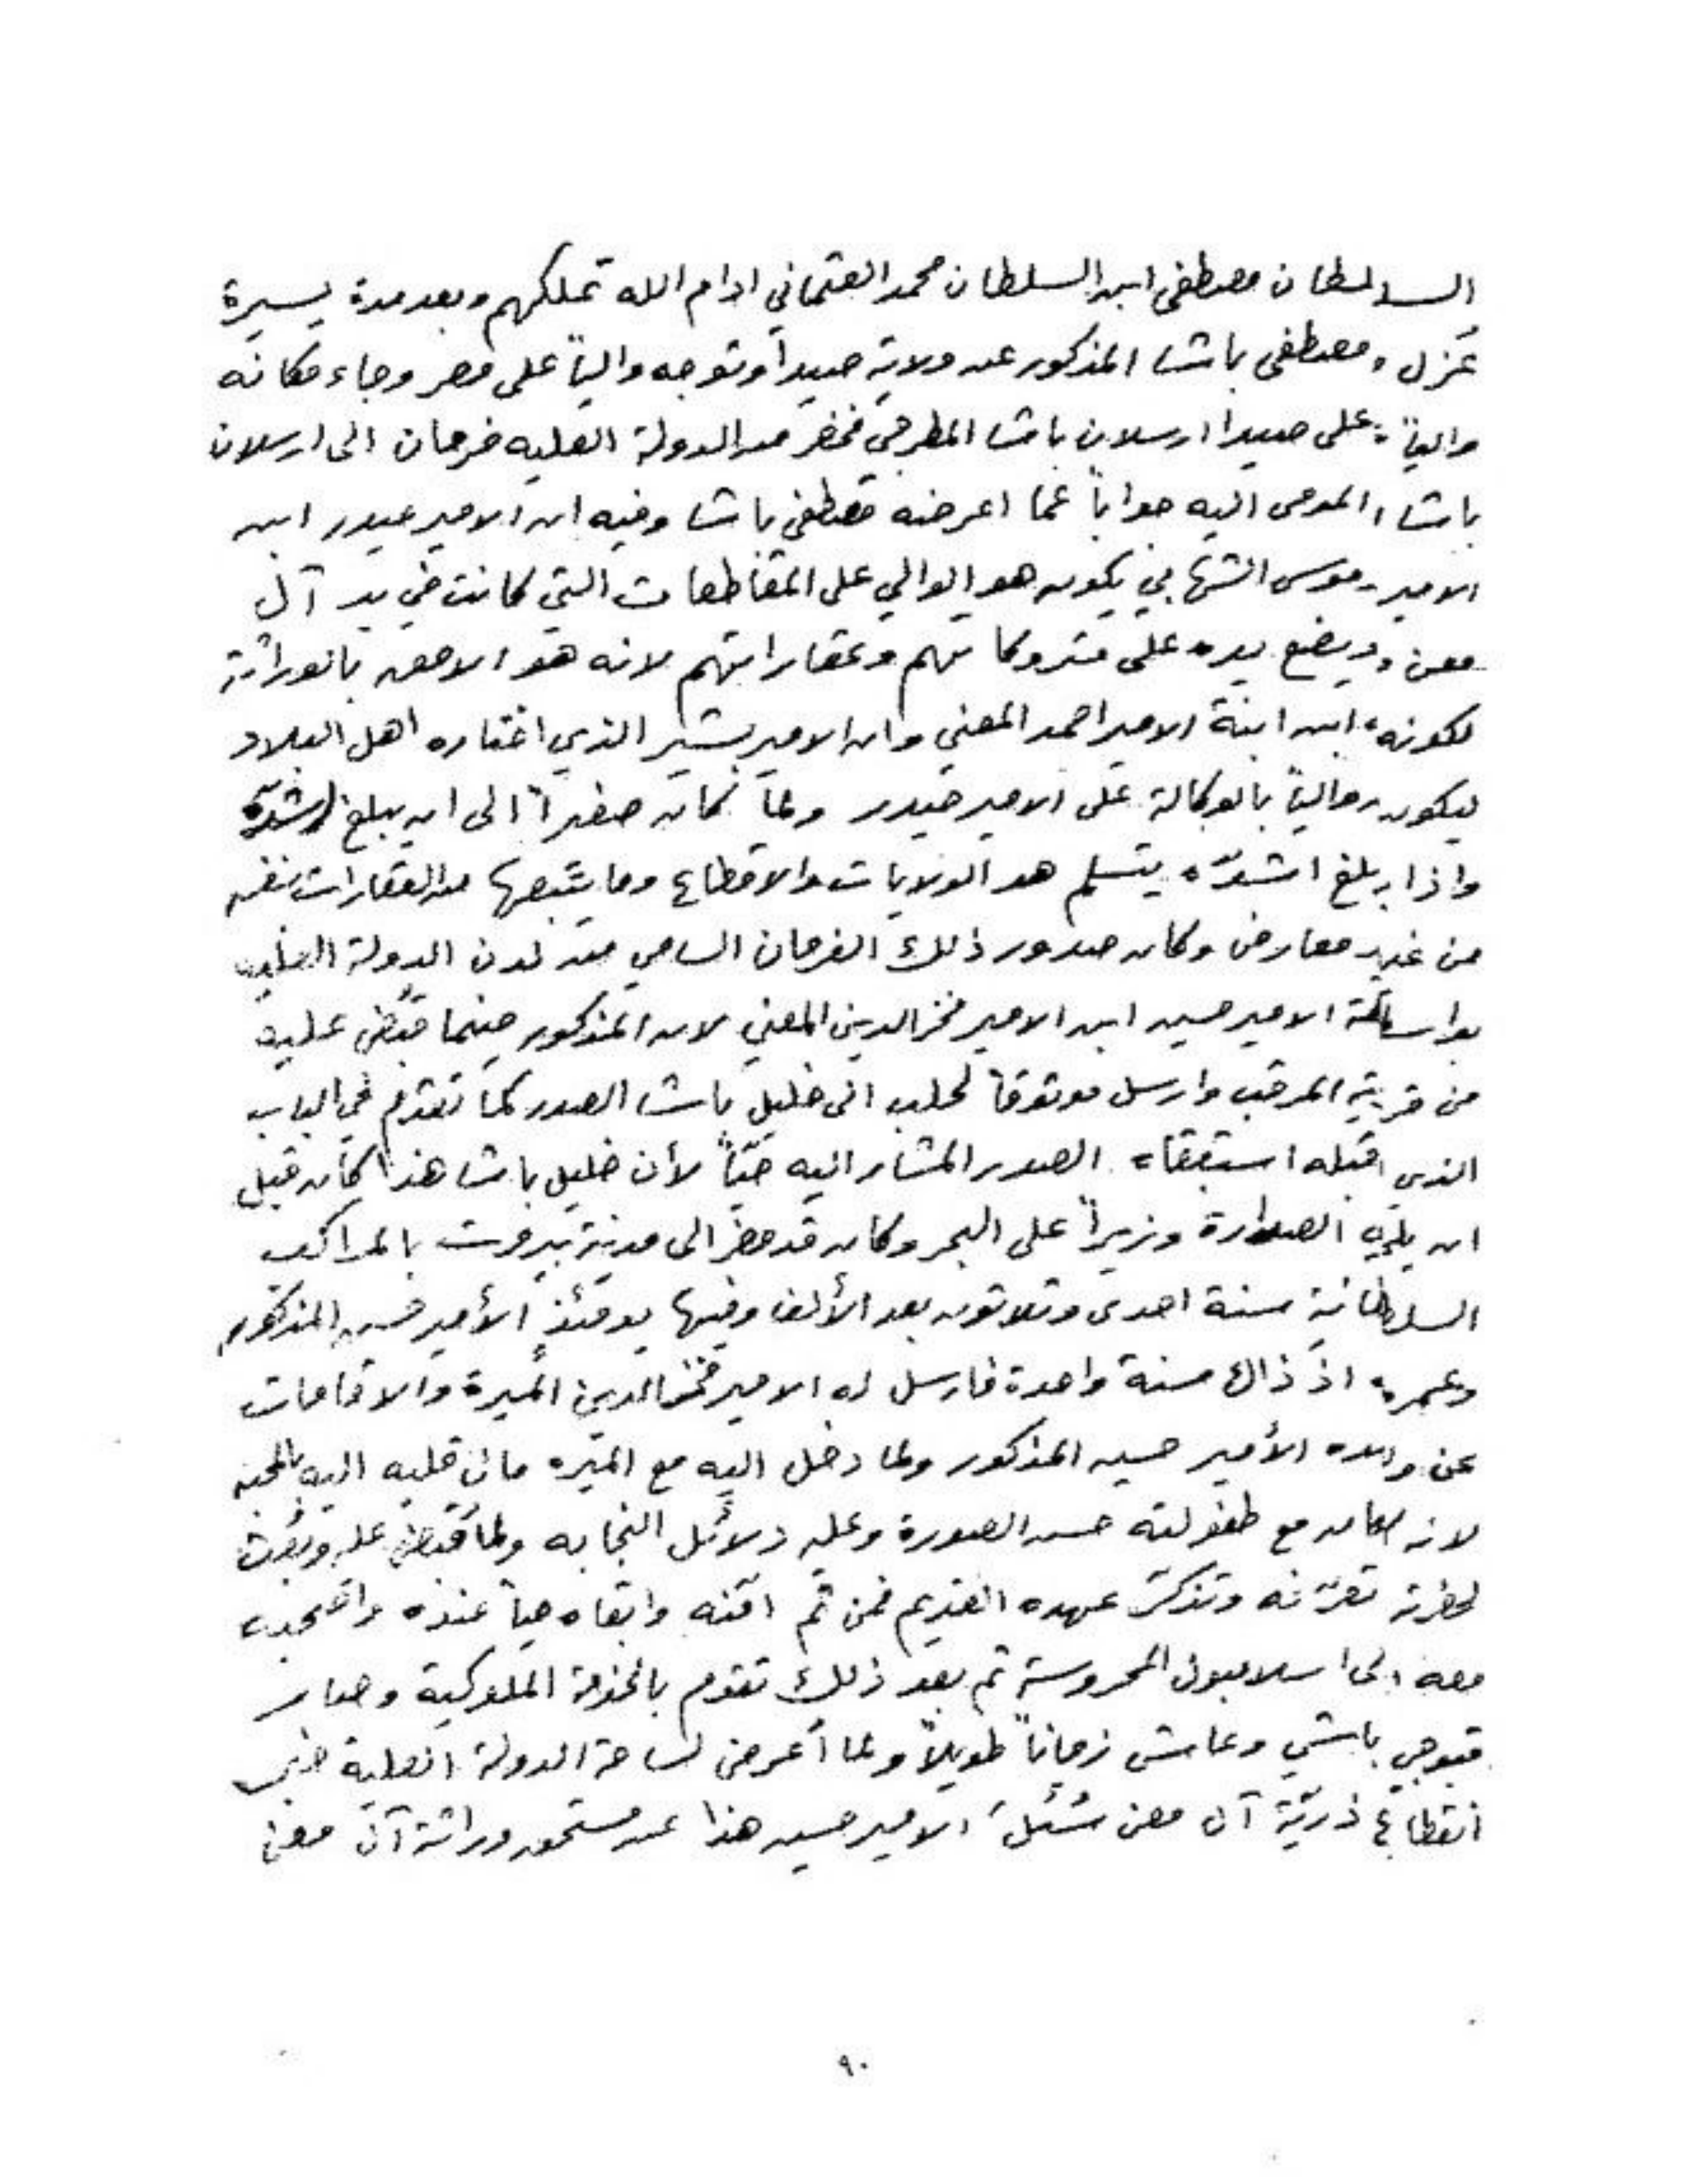 السلطان مصطفى ابن السلطان محمد العثماني ادام الله تملكهم وبعد مدة يسيرة
عُزل مصطفى باشا المذكور عن ولاية صيدا وتوجه والياً على مصر وجاء مكانه
والياً على صيدا ارسلان باشا المطرجي فحضر من الدولة العليه فرمان الى ارسلان
باشا المومى اليه جواباً عما اعرضه مصطفى باشا وفيه ان الامير حيدر ابن
الامير موسى الشهابي يكون هو الوالي على المقاطعات التي كانت في يد آل
معن ويضع يده على متروكاتهم وعقاراتهم لانه هو الاحق بالوراثة
لكونه ابن ابنة الامير احمد المعني وان الامير بشير الذي اختاره اهل البلاد
ليكون والياً بالوكالة على الامير حيدر ولما كان صغيراً الى ان يبلغ رشده
واذا بلغ اشدّه يتسلم هو الولايات والاقطاع وما يتبعها من العقارات بنفسه
من غير معارض وكان صدور ذلك الفرمان السامي من لدن الدولة العليه
بواسطة الامير حسين ابن الامير فخر الدين المعني لان المذكور حينما قبض عليه
من قرية المرقب وارسل موثوقاً لحلب الى خليل باشا الصدر كما تقدم في الباب
الذي قبله استبقاه الصدر المشار اليه حيّاً لأن خليل باشا هذا كان قبل
ان يلي الصدارة وزيراً على البحر وكان قد حضر الى مدينة بيروت بالمراكب
السلطانية سنة احدى وثلاثون بعد الألف وفيها يومئذٍ الأمير حسين المذكور
وعمره اذ ذاك سنة واحدة فارسل له الامير فخر الدين الميرة والاقامات
عن والده الأمير حسين المذكور ولما دخل اليه مع الميره مال قلبه اليه بالمحبه
لانه كان مع طفوليته حسن الصورة وعليه دلائل النجابه ولما قبض عليه وبعث
لحضرته تعرّفه وتذكر عهده القديم فمن ثم امّنه وابقاه حياً عنده واصحبه
معه الى اسلامبول المحروسة ثم بعد ذلك تقدم بالخدمة الملوكية وصار
قبوجي باشي وعاش زماناً طويلاً ولما أعرض لساحة الدولة العلية خبر
انقطاع ذريّة آل معن سُئل الامير حسين هذا عن مستحق وراثة آل معن
٩٠